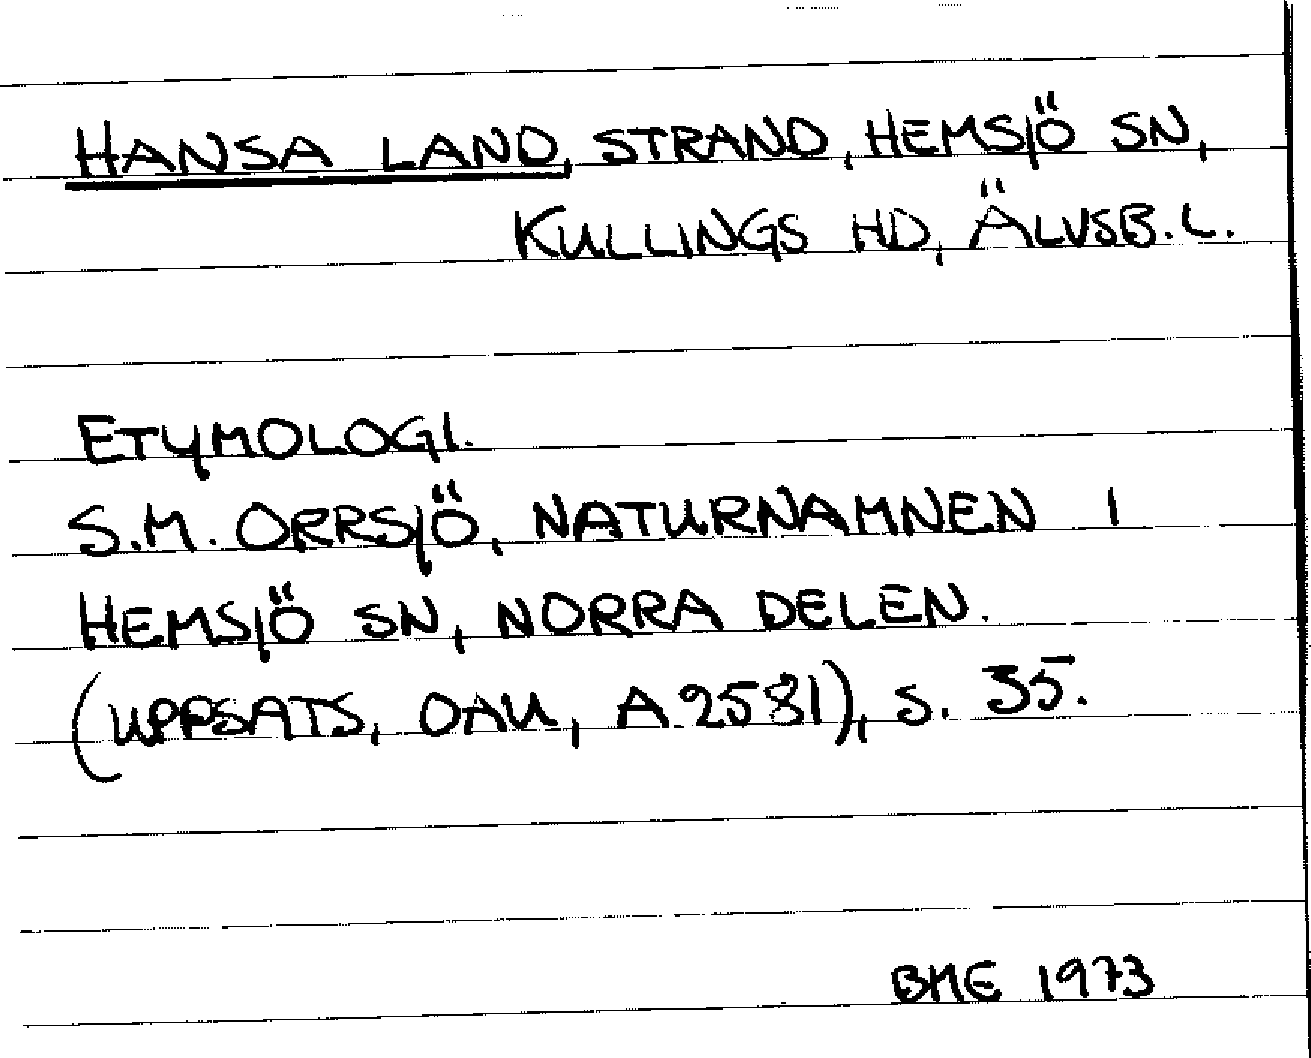 HANSA LAND, STRAND, HEMSJÖ SN,
KULLINGS HD, ÄLVSB. L.
ETYMOLOGI.
S.M. ORRSJÖ, NATURNAMNEN I
HEMSJÖ SN, NORRA DELEN.
(UPPSATS, OAU, A.2581), S. 35.
BME 1973